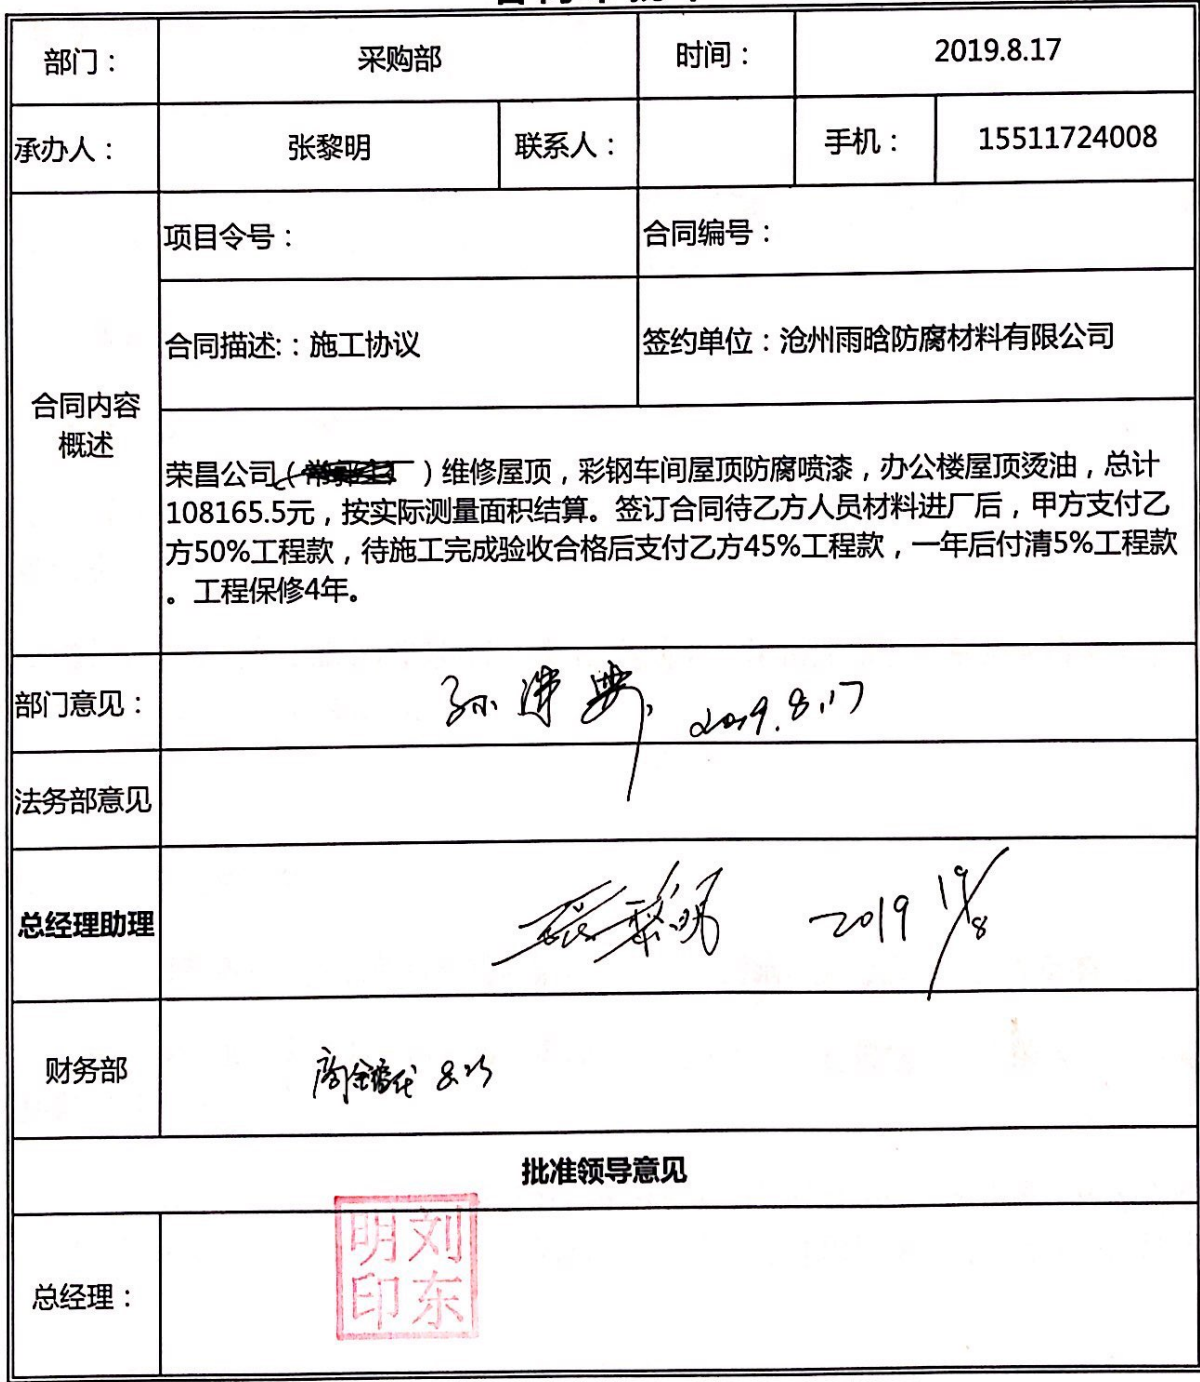 部门： 采购部 时间： 2019.8.17
承办人： 张黎明 联系人： 手机： 15511724008
项目令号： 合同编号：
合同描述:：施工协议 签约单位：沧州雨晗防腐材料有限公司
合同内容
概述
荣昌公司（ ）维修屋顶，彩钢车间屋顶防腐喷漆，办公楼屋顶烫油，总计
108165.5元，按实际测量面积结算。签订合同待乙方人员材料进厂后，甲方支付乙
方50%工程款，待施工完成验收合格后支付乙方45%工程款，一年后付清5%工程款
。工程保修4年。
部门意见： 2019.8.17
法务部意见
总经理助理 张黎明 2019 19/8
财务部
批准领导意见
总经理： 刘东明印